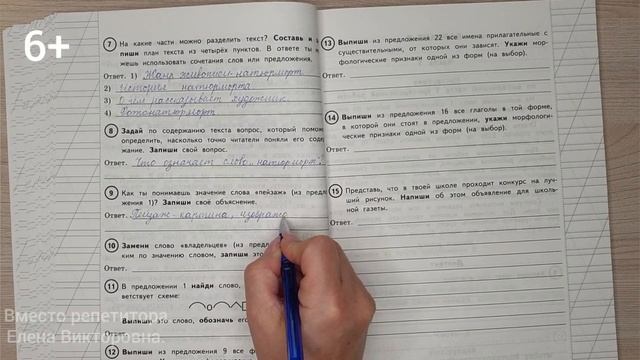 6+
7 На какие части можно разделить текст? Составь и
пиши план текста из четырёх пунктов. В ответе ты м
жешь использовать сочетания слов или предложения.
Ответ. 1) Жанр живописи-натюрморт
2) История натюрморта
3) О чём рассказывает художник
4) Фотонатюрморт
8 Задай по содержанию текста вопрос, который помож
определить, насколько точно читатели поняли его сод
жание. Запиши свой вопрос.
Ответ. Что означает слово „натюрморт".
9 Как ты понимаешь значение слова «пейзаж» (из пред
жения 1)? Запиши своё объяснение.
Ответ. Пейзаж-картина, изобража
10 Замени слово «владельцев» (из предл
ким по значению словом, запиши это
Ответ.
11 В предложении 1 найди слово,
ветствует схеме:
Выпиши это слово, обозначь его
12 Выпиши из предложения 9 все ф
13 Выпиши из предложения 22 все имена прилагательные с
существительными, от которых они зависят. Укажи мор-
фологические признаки одной из форм (на выбор).
14 Выпиши из предложения 16 все глаголы в той форме,
в которой они стоят в предложении, укажи морфологи-
ческие признаки одной из форм (на выбор).
15 Представь, что в твоей школе проходит конкурс на луч-
ший рисунок. Напиши об этом объявление для школь-
ной газеты.
Вместо репетитора
Елена Викторовна.